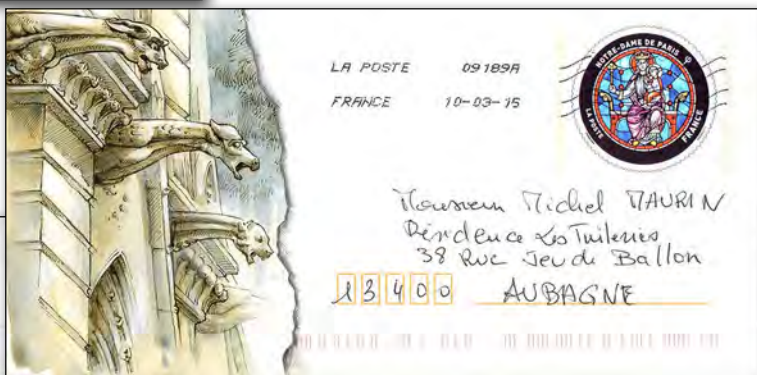 LA POSTE 09189A
FRANCE 10-03-15
NOTRE-DAME DE PARIS
LA POSTE
FRANCE
Monsieur Michel MAURIN
Résidence Les Tuileries
38 Rue Jeu de Ballon
13400 AUBAGNE